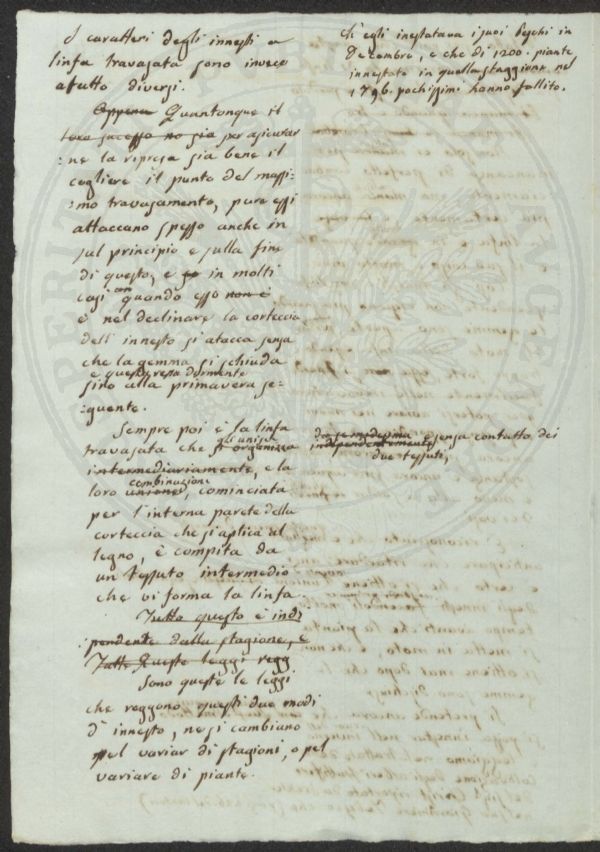 I caratteri degli innesti a
linfa travasata sono invece
afatto diversi.
Appena Quantonque il
loro sucesso no sia per asicurar
:ne la ripresa sia bene il
cogliere il punto del massi:
:mo travasamento, pure essi
attaccano spesso anche in
sul principio e sulla fine
di questo, e se in molti
casi an quando esso non è
è nel declinare la corteccia
dell' innesto si atacca senza
che la gemma si schiuda
e questa resta dormente
sino alla primavera se:
:guente.
Sempre poi è la linfa
travasata che gli unisce si organizza
intermediariamente, e la
loro combinazione unione, cominciata
per l'interna parete della
corteccia che si aplica al
legno, è compita da
un tessuto intermedio
che vi forma la linfa.
Tutto questo è indi
pendente dalla stagione, e
Tutte Queste leggi regg
Sono queste le leggi
che reggono questi due modi
d' innesto, ne si cambiano
pel variar di stagioni, o pel
variare di piante.
ch' egli inestatava i suoi Peschi in
Dezembre, e che di 1200. piante
innestate in quella staggione nel
1796. pochissimi hanno fallito.
da se medesima e senza contatto dei
independentemente
due tessuti,